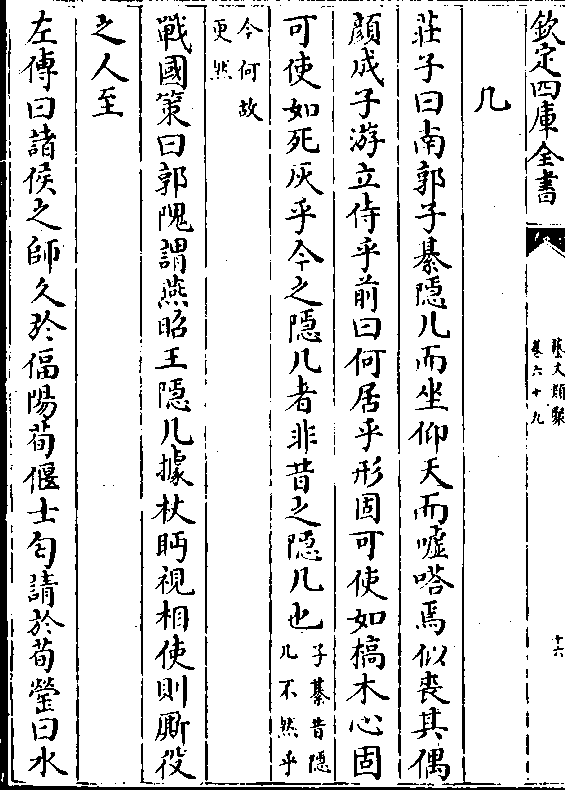 欽定四庫全書
藝文類聚
卷六十九
十六
几
莊子曰南郭子綦隱几而坐仰天而噓嗒焉似喪其偶
顔成子游立侍乎前曰何居乎形固可使如槁木心固
可使如死灰乎今之隱几者非昔之隱几也子綦昔隱
几不然乎
今何故
更然
戰國策曰郭隗謂燕昭王隱几據杖眄視相使則厮役
之人至
左傳曰諸侯之師久於偪陽荀偃士匄請於荀罃曰水